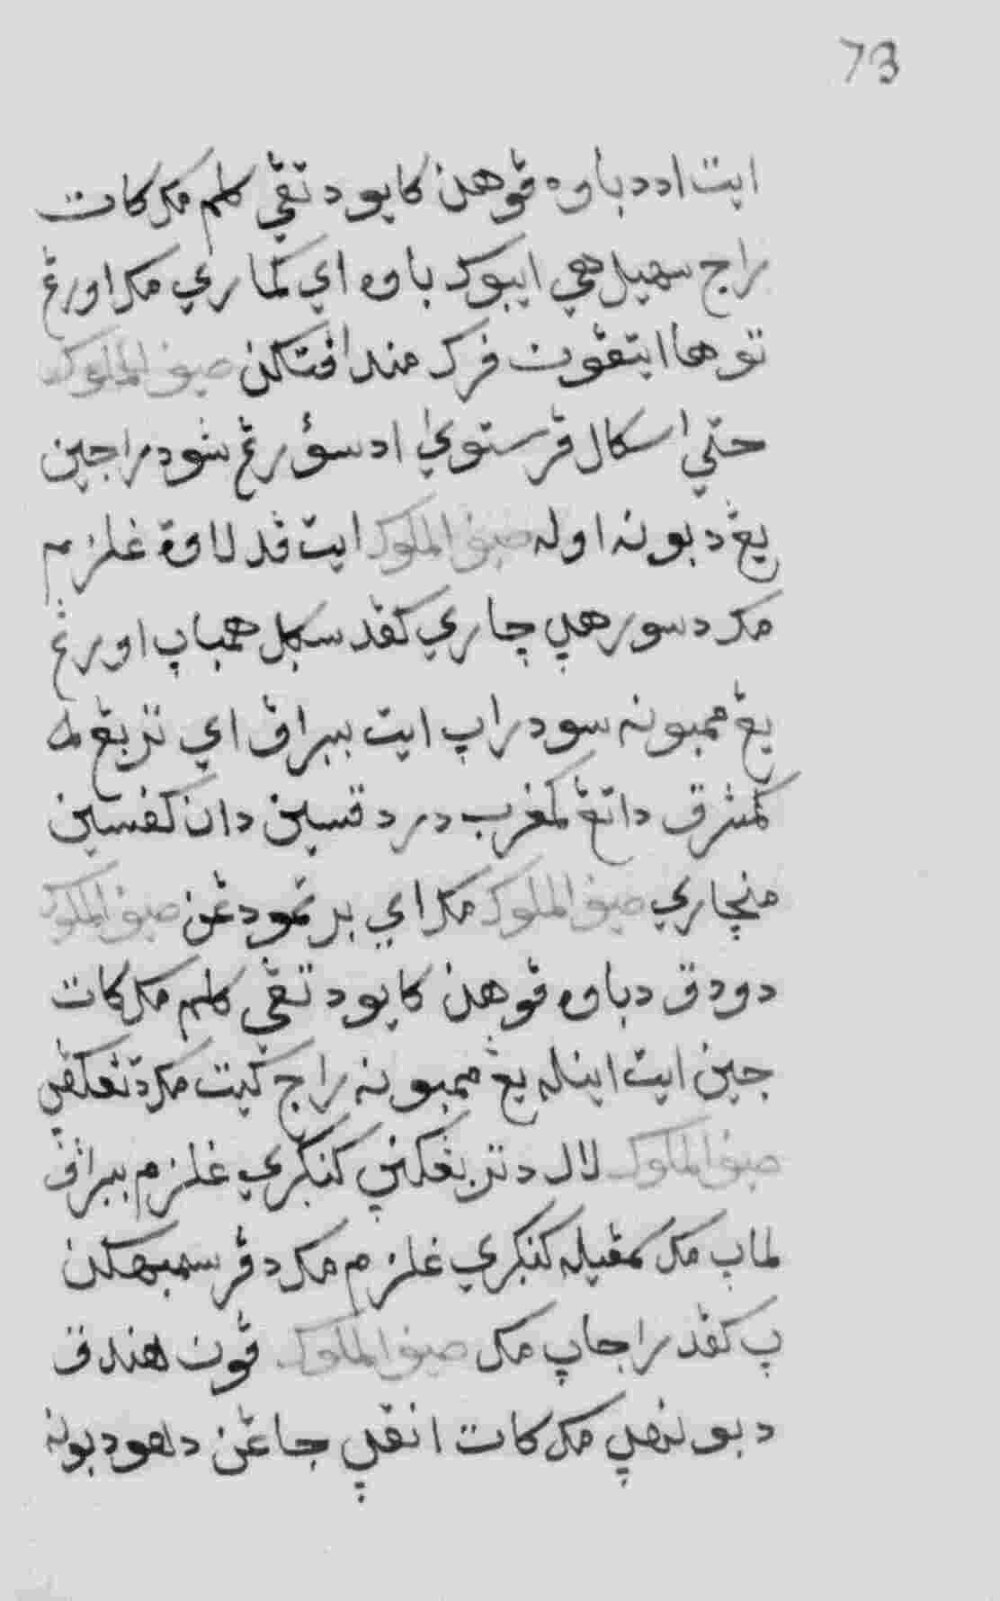 73
ايت اد دباوه ڤوهن كايو دتڤي كلم مك كات
راج سهيل هي ايبوك باوه اي كماري مك اورڠ
توها ايتڤون فرك مندافتكن صيف الملوك
حتي اسكال ڤرستوي اد سؤرڠ شودر اجين
يڠ دبونه اوله صيف الملوك ايت ڤد لاوة غلزم
مك دسورهڽ چاري كڤد سكل همباڽ اورڠ
يڠ ممبونه سودراڽ ايت ببراڤ اي تربڠ له
كمشرق داتڠ كمغرب در دقسين دان كفسين
منچاري صيف الملوك مك اي برتمو دڠن صيف الملوك
دودق دباوه ڤوهن كايو دتڤي كلم مك كات
جين ايت اينله يڠ ممبونه راج كيت مك دتڠكڤڽ
صيف الملوك لال دتربڠكنڽ كنكري غلزم ببراڤ
لماڽ مك سمڤيله كنكري غلزم مك دڤرسمبهكن
ڽ كڤد راجاڽ مك صيف الملوك ڤون هندق
دبونهڽ مك كات انقڽ جاڠن داهو دبونه